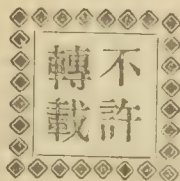 不許
轉載